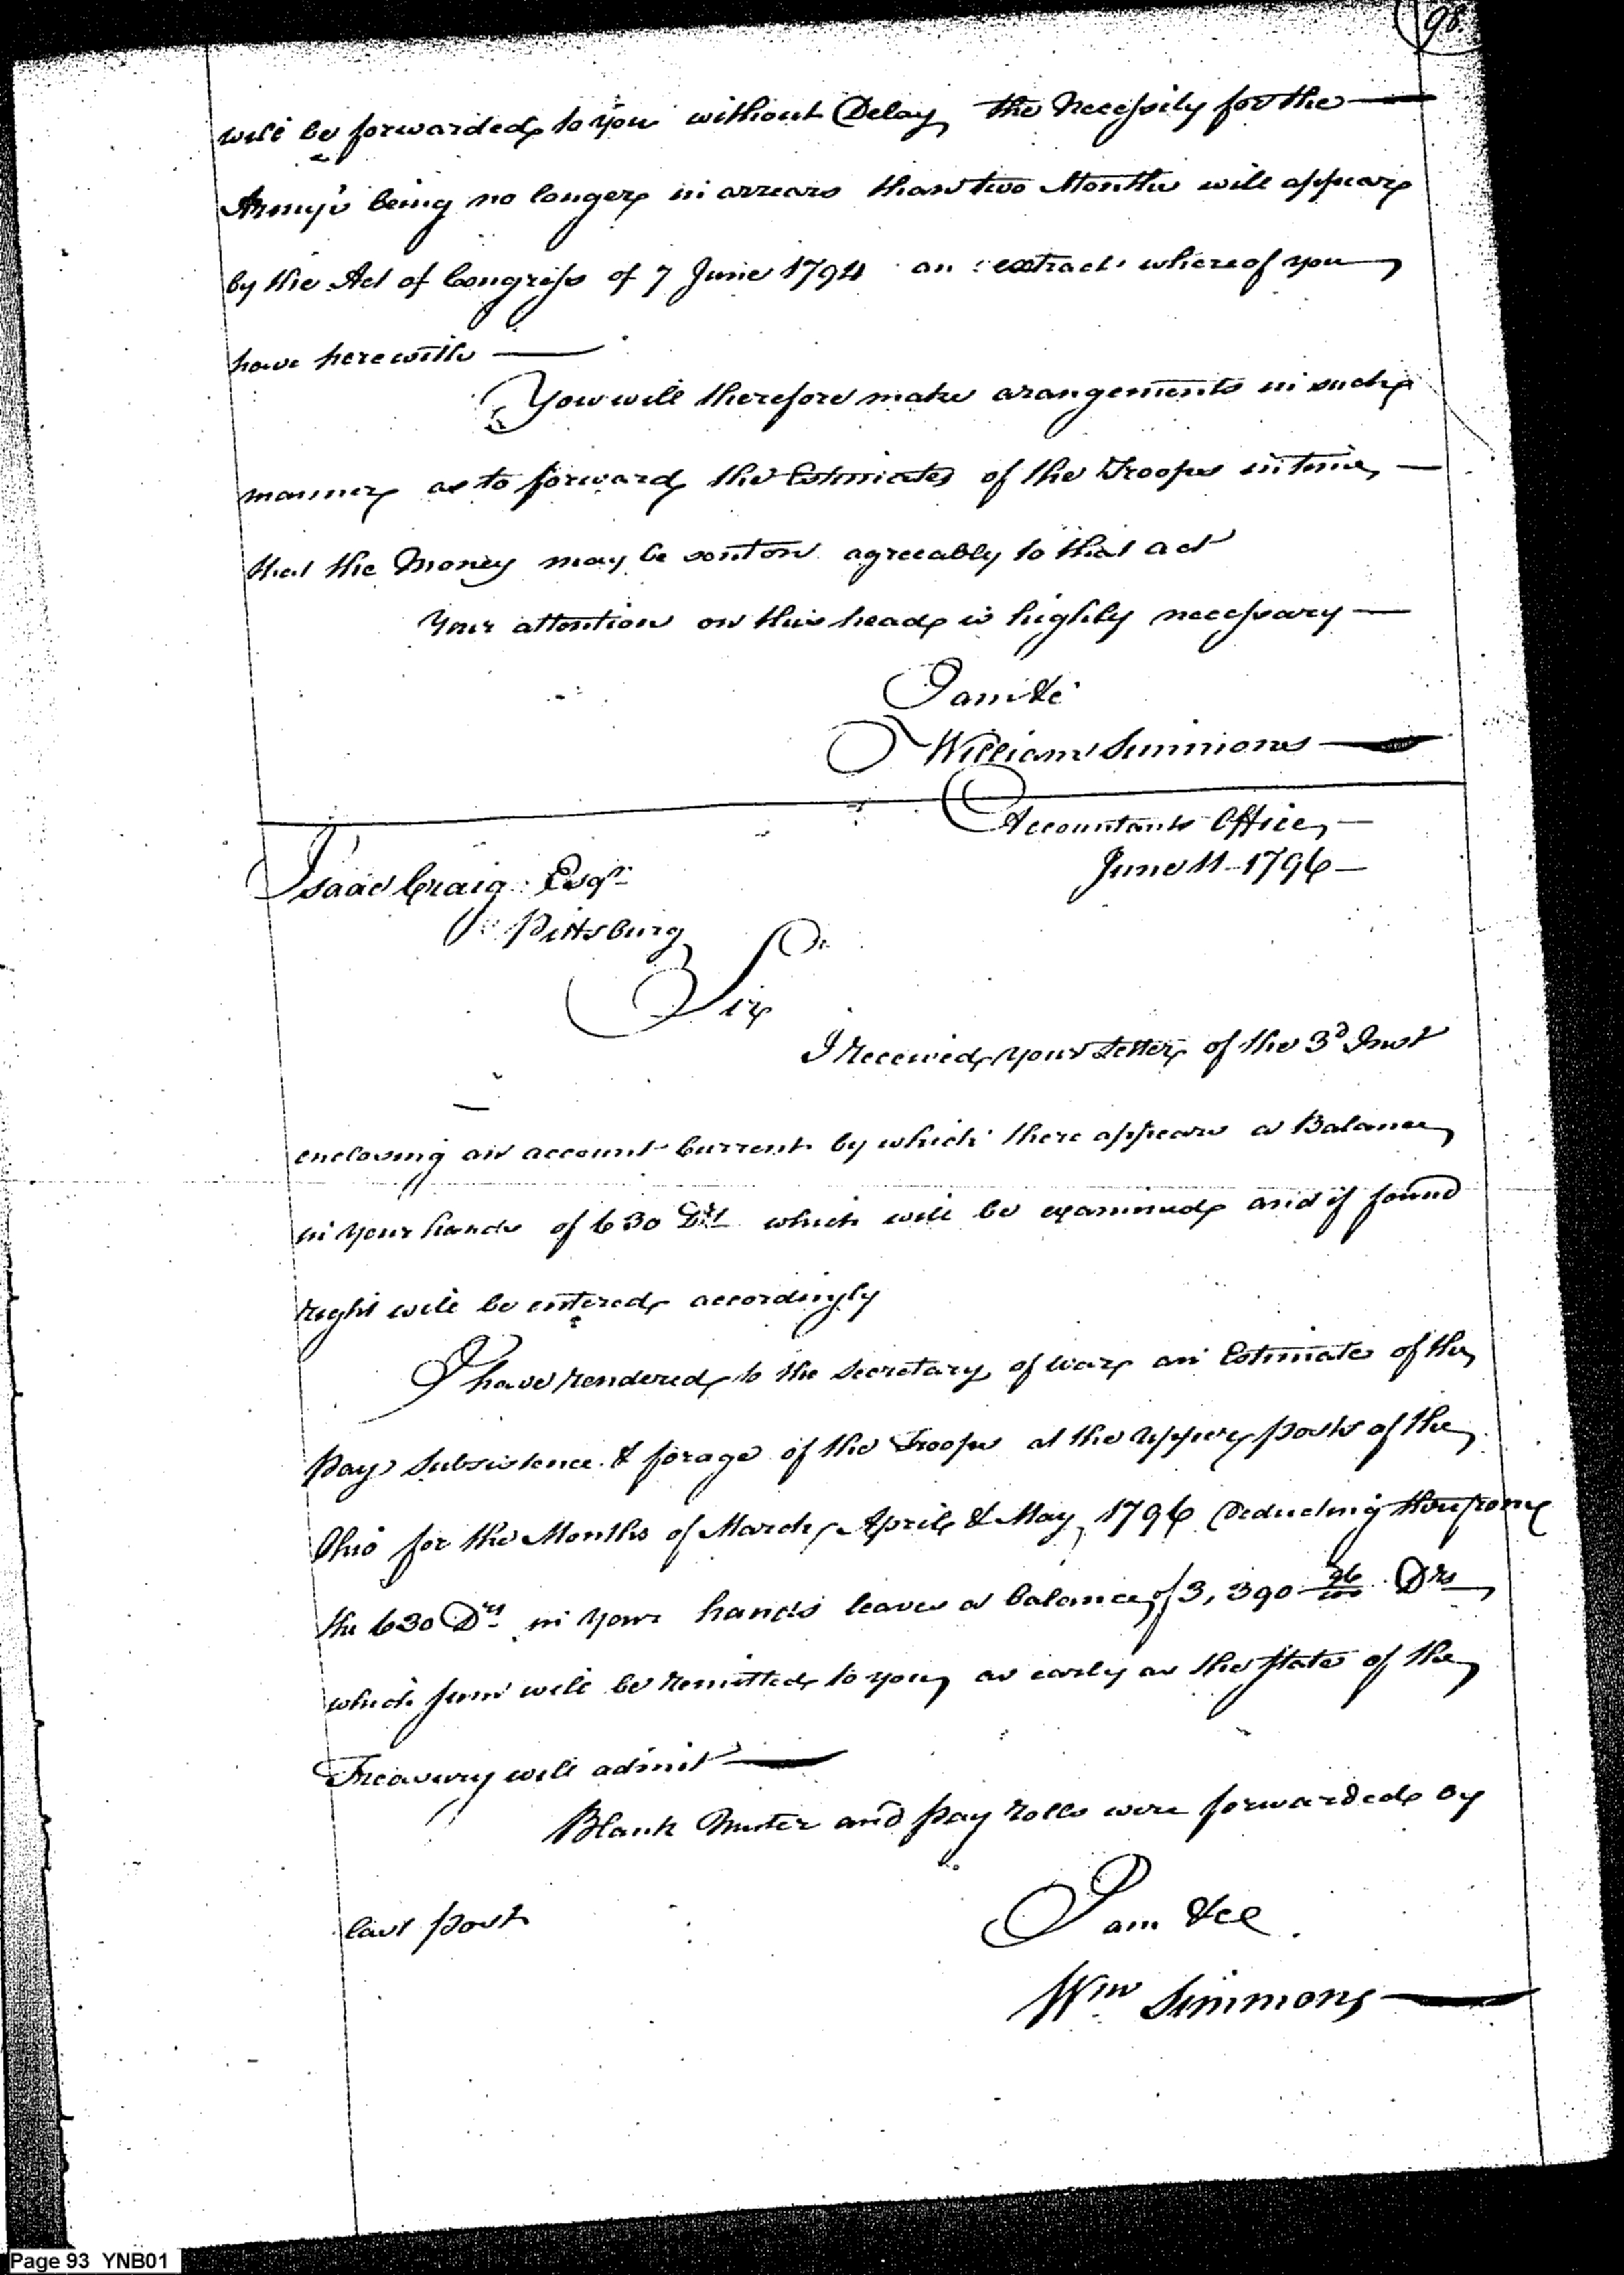 98
will be forwarded to you without Delay, the Necessity for the —
Army's being no longer in arrears than two Months will appear
by the Act of Congress of 7 June 1794 an extract whereof you
have herewith —
You will therefore make arangements in such
manner as to forward the Estimates of the Troops in time, —
that the Money may be sent on agreeably to that act
Your attention on this head is highly necessary —
I am &c
William Simmons —
Accountants Office, —
June 11 1796 —
Isaac Craig Esqr
Pittsburg
Sir
I received your Letter of the 3d Inst
enclosing an account Current by which there appears a Balance
in your hands of 630 Drs which will be examined and if found
right will be entered accordingly
I have rendered to the Secretary of War an Estimate of the
Pay, Subsistence & forage of the Troops at the upper posts of the
Ohio for the Months of March, April & May, 1796 Deducting therefrom
the 630 Drs in your hands leaves a balance of 3,390 96/100 Drs
which sum will be remitted to you, as early as the state of the
Treasury will admit —
Blank Muster and Pay rolls were forwarded by
last post
I am &c
Wm Simmons —
Page 93 YNB01